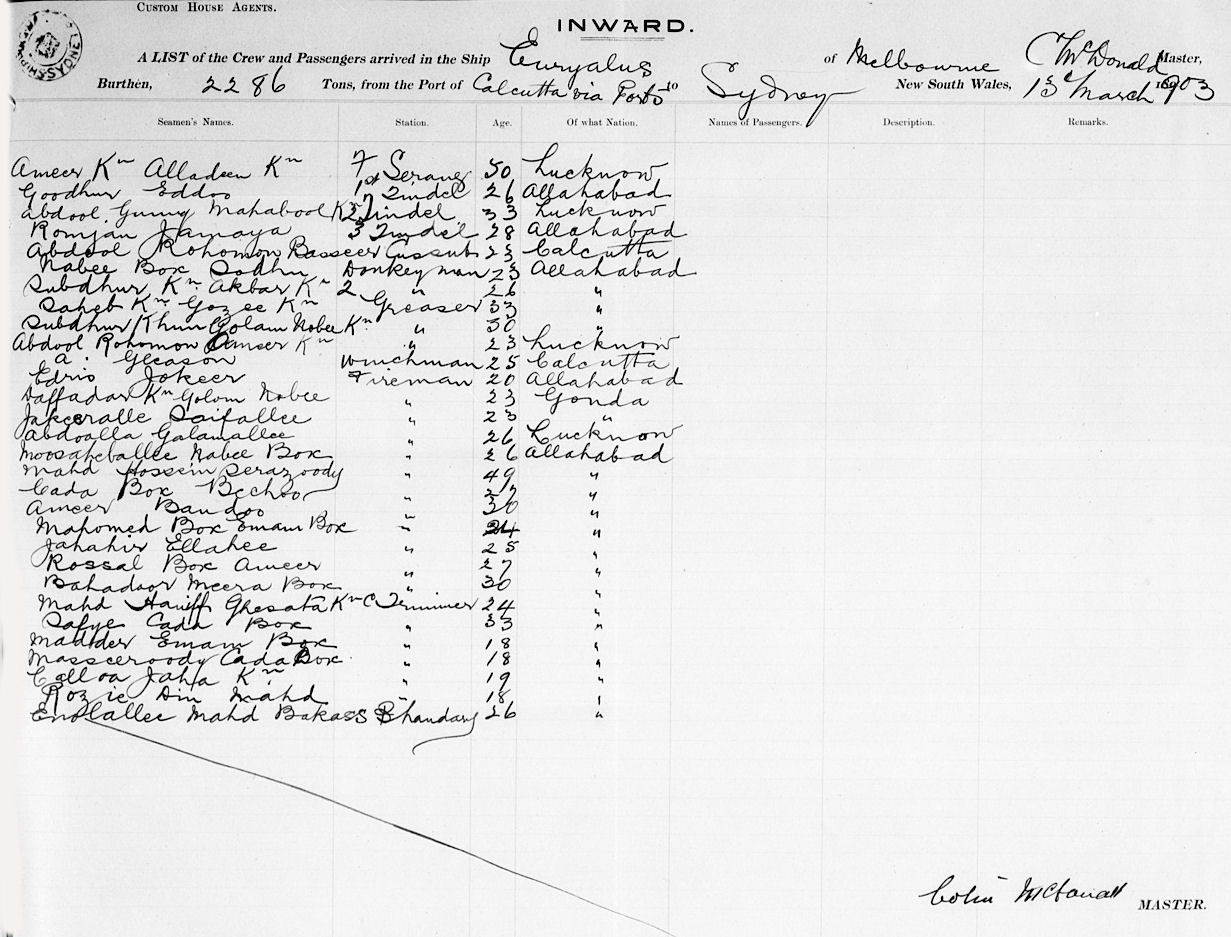 CUSTOM HOUSE AGENTS.
INWARD.
A LIST of the Crew and Passengers arrived in the Ship Euryalus of Melbourne C McDonald Master,
Burthen, 2286 Tons, from the Port of Calcutta via Ports to Sydney New South Wales, 13 March 1903
Seamen's Names. Station. Age. Of what Nation. Names of Passengers. Description. Remarks.
Ameer Kn Alladeen Kn F Serang 50 Lucknow
Goodhur Eddoo 1st Tindel 26 Allahabad
Abdool Gunny Mahabool Kn 2 Tindel 33 Lucknow
Romjan Jamaya 3 Tindel 28 Allahabad
Abdool Rohomon Basseer Cussub 23 Calcutta
Nabee Box Sodhu Donkeyman 23 Allahabad
Subdhur Kn Akbar Kn 2 " 26 "
Saheb Kn Gozee Kn Greaser 33 "
Subdhur Khun Golam Nobee Kn " 30 "
Abdool Rohomon Ameer Kn " 23 Lucknow
A. Gleason Winchman 25 Calcutta
Edris Jokeer Fireman 20 Allahabad
Daffadar Kn Golom Nobee " 23 Gonda
Jakeeralle Saifallee " 23 "
Abdoalla Galamallee " 26 Lucknow
Moosaheballee Nabee Box " 26 Allahabad
Mahd Hossein Serazoody " 49 "
Cada Box Bechoo " 27 "
Ameer Bandoo " 30 "
Mahomed Box Emam Box " 24 "
Jahahir Ellahee " 25 "
Rossal Box Ameer " 27 "
Bahadoor Meera Box " 30 "
Mahd Haniff Ghesata Kn C Trimmer 24 "
Safye Cada Box " 33 "
Madder Emam Box " 18 "
Masseeroody Cada Box " 18 "
Calloa Jaha Kn " 19 "
Rozie Din Mahd " 18 "
Enollallee Mahd Bakass Bhandary 26 "
Colin McDonald MASTER.